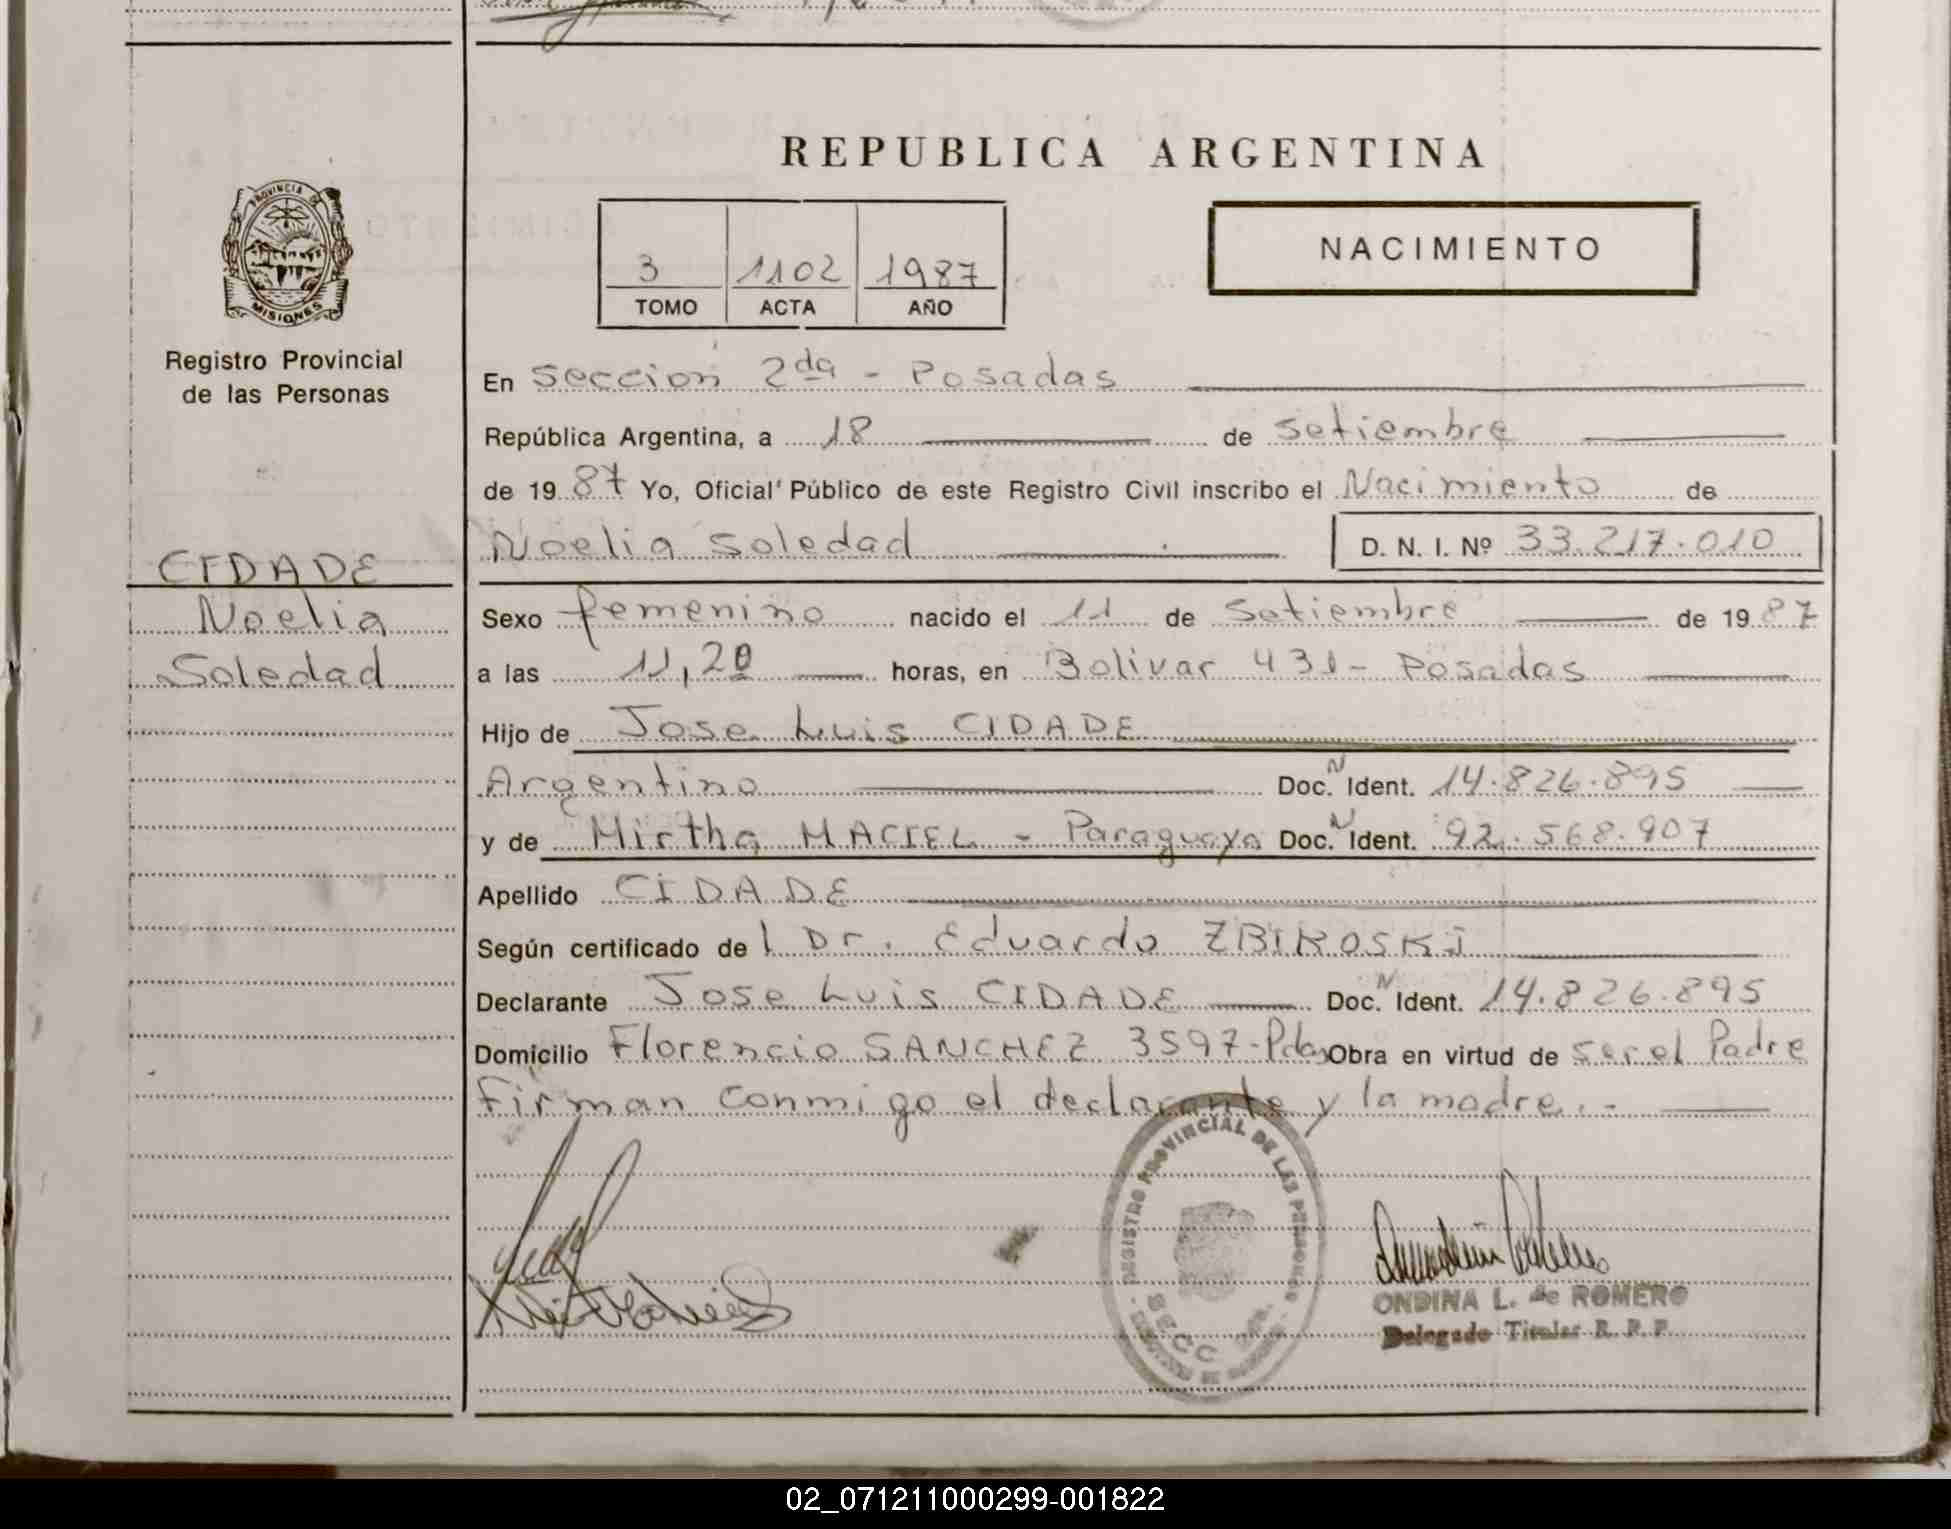 REPUBLICA ARGENTINA
PROVINCIA DE
MISIONES
Registro Provincial
de las Personas
3 1102 1987
TOMO ACTA AÑO
NACIMIENTO
En Seccion 2da - Posadas
República Argentina, a 18 de Setiembre
de 1987 Yo, Oficial Público de este Registro Civil inscribo el Nacimiento de
Noelia Soledad D. N. I. Nº 33.217.010
CIDADE
Noelia
Soledad
Sexo femenino nacido el 11 de Setiembre de 1987
a las 11,20 horas, en Bolivar 431 - Posadas
Hijo de Jose Luis CIDADE
Argentino Doc. N Ident. 14.826.895
y de Mirtha MACIEL - Paraguaya Doc. N Ident. 92.568.907
Apellido CIDADE
Según certificado de l Dr. Eduardo ZBIKOSKI
Declarante Jose Luis CIDADE Doc. N Ident. 14.826.895
Domicilio Florencio SANCHEZ 3597-Pdas Obra en virtud de ser el Padre
Firman conmigo el declarante y la madre.-
REGISTRO PROVINCIAL DE LAS PERSONAS
SECC
ONDINA L. de ROMERO
Delegado Titular R. P. P.
02_071211000299-001822